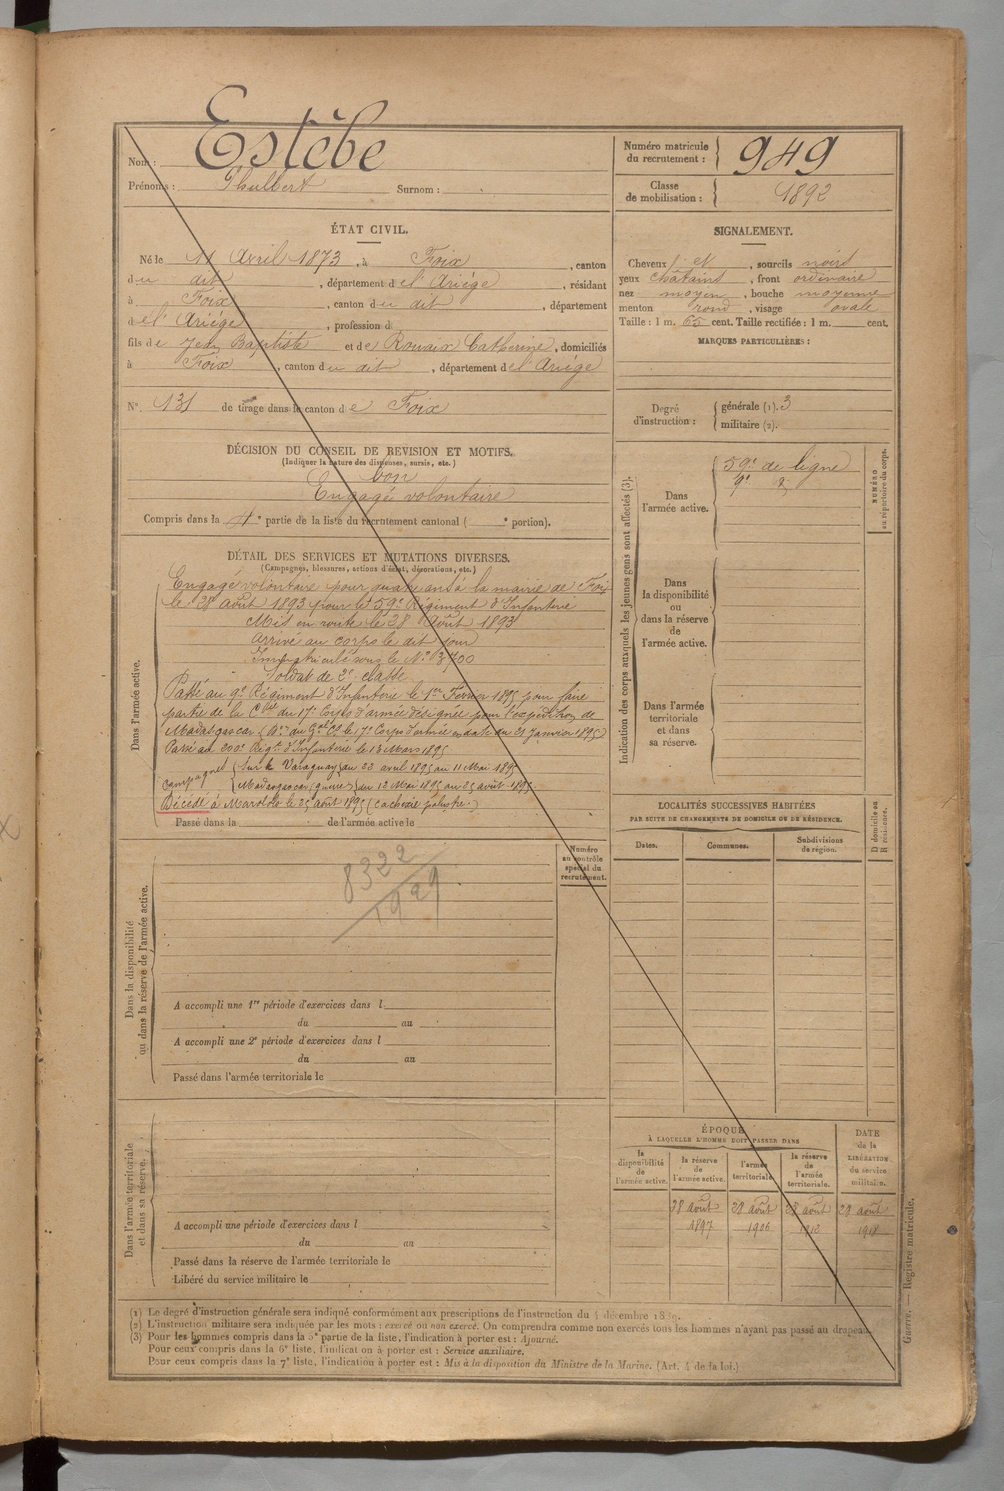 Nom : Estèbe
Prénoms : Philbert Surnom :
Numéro matricule du recrutement : 949
Classe de mobilisation : 1892
ÉTAT CIVIL.
Né le 11 Avril 1873, à Foix, canton
du dit, département de l'Ariège, résidant
à Foix, canton du dit, département
de l'Ariège, profession d
fils de Jean Baptiste et de Rouaix Catherine, domiciliés
à Foix, canton du dit, département de l'Ariège
N° 131 de tirage dans le canton de Foix
SIGNALEMENT.
Cheveux et, sourcils noirs
yeux châtains, front ordinaire
nez moyen, bouche moyenne
menton rond, visage ovale
Taille : 1 m. 65 cent. Taille rectifiée : 1 m. cent.
MARQUES PARTICULIÈRES :
Degré d'instruction : générale (1). 3
militaire (2).
DÉCISION DU CONSEIL DE REVISION ET MOTIFS.
(Indiquer la nature des dispenses, sursis, etc.)
bon
Engagé volontaire
Compris dans la 4e partie de la liste du recrutement cantonal ( e portion).
DÉTAIL DES SERVICES ET MUTATIONS DIVERSES.
(Campagnes, blessures, actions d'éclat, décorations, etc.)
Dans l'armée active.
Engagé volontaire pour quatre ans à la mairie de Foix
le 28 août 1893 pour le 59e Régiment d'Infanterie
Mis en route le 28 Août 1893
Arrivé au corps le dit jour
Immatriculé sous le N° 3700
Soldat de 2e classe
Passé au 9e Régiment d'Infanterie le 1er Février 1895 pour faire
partie de la Cie du 17e Corps d'armée désignée pour l'expédition de
Madagascar (on du Gal Ct le 17e Corps d'armée en date du 21 Janvier 1895)
Passé au 200e Régt d'Infanterie le 13 Mars 1895
Campagnes Sur le Varaguay du 22 avril 1895 au 11 Mai 1895
Madagascar (guerre) du 12 Mai 1895 au 25 août 1895
Décédé à Marololo le 25 août 1895 (cachexie palustre.)
Passé dans la de l'armée active le
Indication des corps auxquels les jeunes gens sont affectés (3).
Dans l'armée active.
59e de ligne
9e
Dans la disponibilité ou dans la réserve de l'armée active.
Dans l'armée territoriale et dans sa réserve.
NUMÉRO au répertoire du corps.
LOCALITÉS SUCCESSIVES HABITÉES
PAR SUITE DE CHANGEMENTS DE DOMICILE OU DE RÉSIDENCE.
Dates. Communes. Subdivisions de région.
D domicile ou R résidence.
Numéro au contrôle spécial du recrutement.
8322
1929
Dans la disponibilité ou dans la réserve de l'armée active.
A accompli une 1re période d'exercices dans l
du au
A accompli une 2e période d'exercices dans l
du au
Passé dans l'armée territoriale le
Dans l'armée territoriale et dans sa réserve.
A accompli une période d'exercices dans l
du au
Passé dans la réserve de l'armée territoriale le
Libéré du service militaire le
ÉPOQUE
À LAQUELLE L'HOMME DOIT PASSER DANS
la disponibilité de l'armée active.
la réserve de l'armée active.
l'armée territoriale.
la réserve de l'armée territoriale.
DATE de la LIBÉRATION du service militaire.
28 août 28 août 28 août 28 août
1897 1906 1912 1918
(1) Le degré d'instruction générale sera indiqué conformément aux prescriptions de l'instruction du 4 décembre 1889.
(2) L'instruction militaire sera indiquée par les mots : exercé ou non exercé. On comprendra comme non exercés tous les hommes n'ayant pas passé au drapeau.
(3) Pour les hommes compris dans la 5e partie de la liste, l'indication à porter est : Ajourné.
Pour ceux compris dans la 6e liste, l'indication à porter est : Service auxiliaire.
Pour ceux compris dans la 7e liste, l'indication à porter est : Mis à la disposition du Ministre de la Marine. (Art. 4 de la loi.)
Guerre. — Registre matricule.